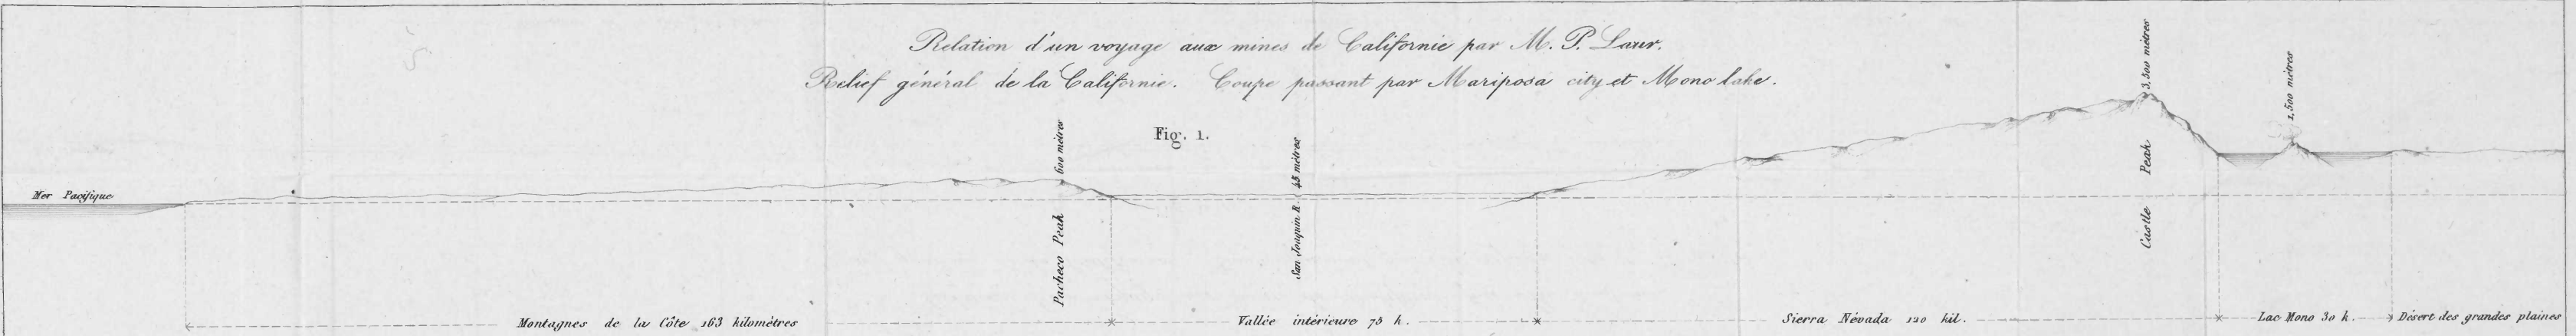 Relation d'un voyage aux mines de Californie par M. P. Laur.
Relief général de la Californie. Coupe passant par Mariposa city et Mono lake.
Fig. 1.
Mer Pacifique
Pacheco Peak 600 mètres
San Joaquin R. 45 mètres
Castle Peak 3,500 mètres
1,500 mètres
Montagnes de la Côte 163 kilomètres
Vallée intérieure 75 k.
Sierra Névada 120 kil.
Lac Mono 30 k.
Désert des grandes plaines